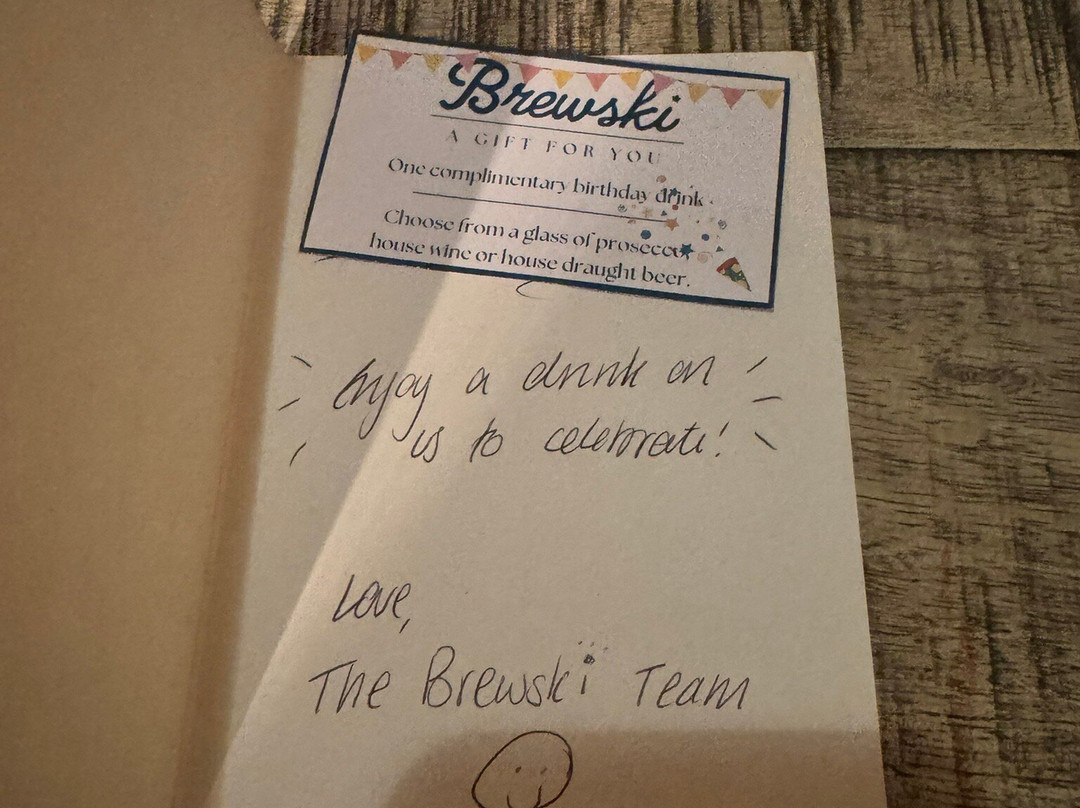 Brewski
A GIFT FOR YOU
One complimentary birthday drink
Choose from a glass of prosecco,
house wine or house draught beer.
Enjoy a drink on
us to celebrate!
Love,
The Brewski Team